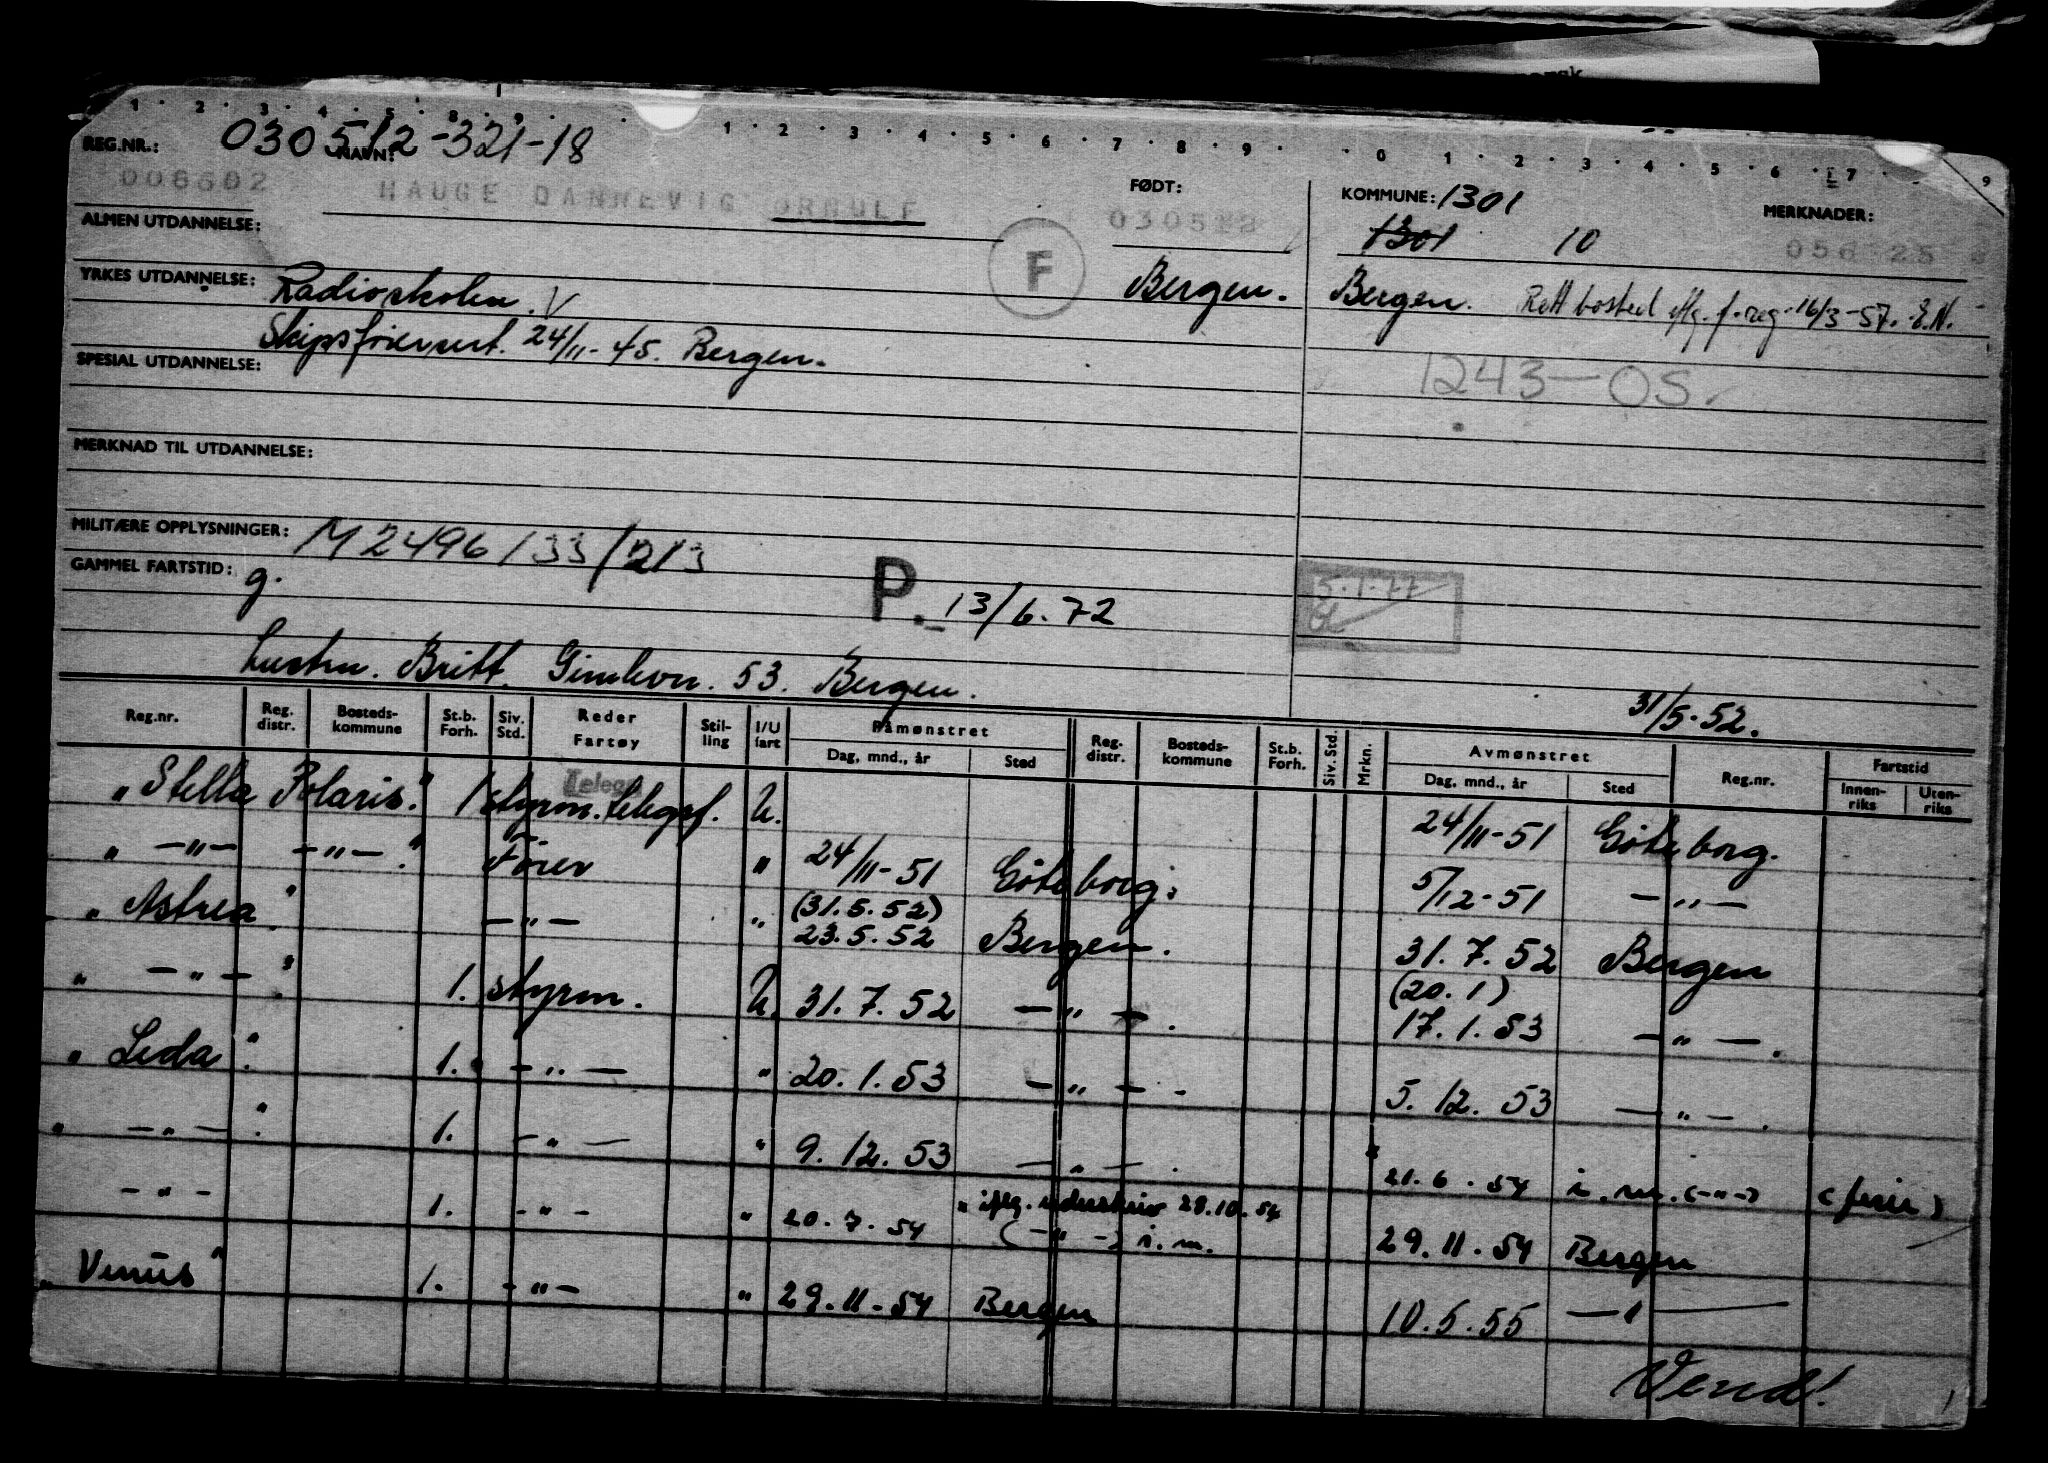 1 · 2 · 3 · 4 · 5 · 8 · 9 · 1 · 2 · 3 · 4 · 5 · 6 · 7 · 8 · 9 · 0 · 1 · 2 · 3 · 4 · 5 · 6 · 7 · 9
REG.NR.: 030512-321-18
NAVN: HAUGE DANNEVIG ØRNULF
006602
FØDT: 030512
KOMMUNE: 1301
1301 10
MERKNADER:
056 25
ALMEN UTDANNELSE:
F
Bergen. Bergen. Rett bosted iflg. f.reg. 16/3-57. E.N.
YRKES UTDANNELSE: Radioskolen. V
Skipsførersert. 24/11-45. Bergen.
1243-OS.
SPESIAL UTDANNELSE:
MERKNAD TIL UTDANNELSE:
MILITÆRE OPPLYSNINGER: M 2496/33/213
GAMMEL FARTSTID: g.
P. 13/6.72
5.1.77
Hustru. Britt. Gimlevn. 53. Bergen.
31/5-52.
Reg.nr. Reg. distr. Bosteds-kommune St.b. Forh. Siv. Std. Reder Fartøy Stil-ling I/U fart Påmønstret Dag, mnd., år Sted Reg. distr. Bosteds-kommune St.b. Forh. Siv. Std. Mrkn. Avmønstret Dag, mnd., år Sted Reg.nr. Fartstid Innen-riks Uten-riks
Telegr
"Stella Polaris." 1 styrm. telegrf. U. 24/11-51 Göteborg.
" -"- -"-." Fører " 24/11-51 Göteborg. 5/12-51 -"-
"Astrea". -"- " (31.5.52) 23.5.52 Bergen. 31.7.52 Bergen
" -"-". 1. styrm. U. 31.7.52 -"-. (20.1) 17.1.53 -"-.
"Leda". 1. -"- " 20.1.53 -"-. 5.12.53 -"-.
" -"-". 1. -"- " 9.12.53 -"-. 21.6.54 i.m. (-"-) (ferie)
-"- 1. -"- " 20.7.54 " iflg. rederskriv 28.10.54 (-"-) i.m. 29.11.54 Bergen
"Venus" 1. -"- " 29.11.54 Bergen 10.5.55 -"-
Vend!
1